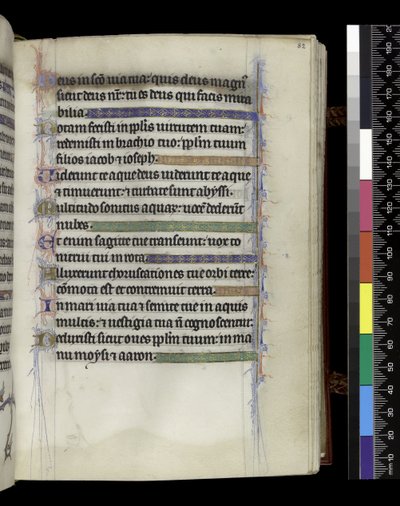 82
Deus in sc̄o uia tua: quis deus magn᷒
sicut deus nr̄: tu es deus qui facis mira
bilia.
Notam fecisti in pp̄lis uirtutem tuam:
redemisti in brachio tuo: pp̄lm tuum
filios iacob ⁊ ioseph.
Uiderunt te aque deus uiderunt te aque
⁊ timuerunt: ⁊ turbate sunt abyssi.
Multitudo sonitus aquaꝝ: uocē dederūt
nubes.
Etenim sagitte tue transeunt: uox to
nitrui tui in rota.
Illuxerunt choruscationes tue orbi terre:
cōmota est et contremuit terra.
In mari uia tua ⁊ semite tue in aquis
multis: ⁊ uestigia tua nō cognoscentur.
Deduxisti sicut oues pp̄lm tuum: in ma
nu moysi ⁊ aaron.